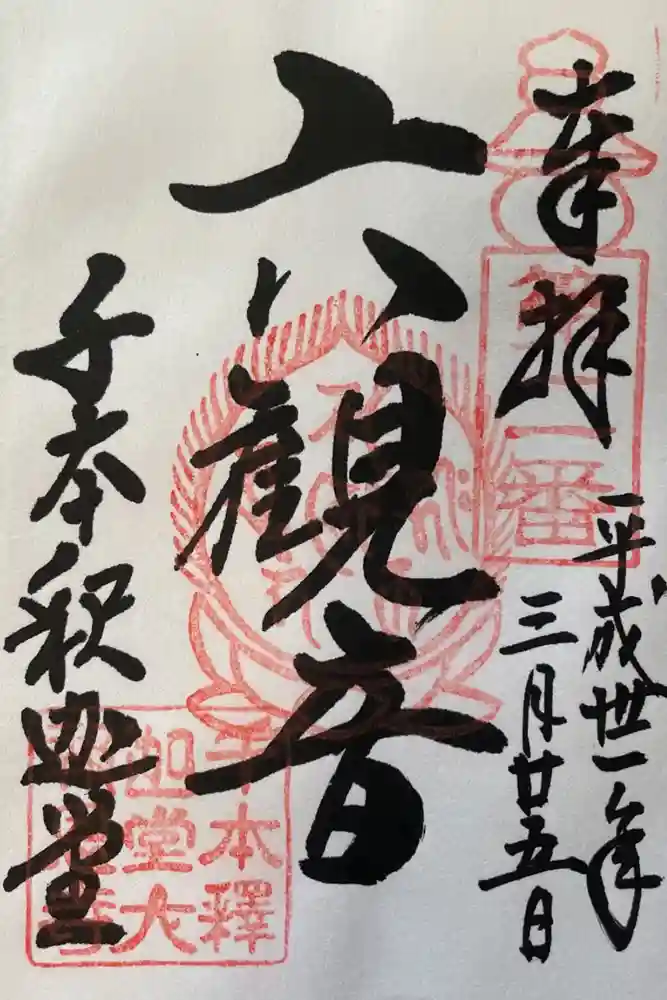 奉拝
第一番
平成丗一年
三月廿五日
六観音
千本釈迦堂
千本釋
迦堂大
報恩寺